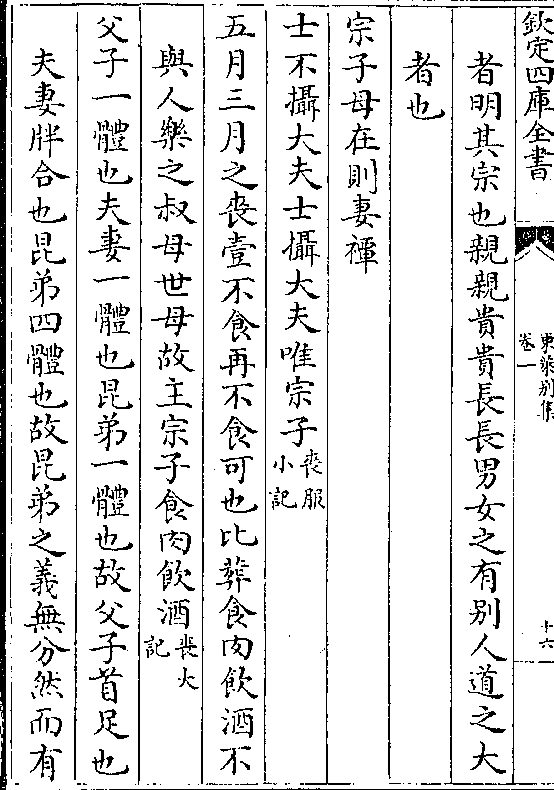 欽定四庫全書
東萊別集
卷一
十六
者明其宗也親親貴貴長長男女之有别人道之大
者也
宗子母在則妻禫
士不攝大夫士攝大夫唯宗子喪服小記
五月三月之喪壹不食再不食可也比葬食肉飲酒不
與人樂之叔母世母故主宗子食肉飲酒喪大記
父子一體也夫妻一體也昆弟一體也故父子首足也
夫妻牉合也昆弟四體也故昆弟之義無分然而有